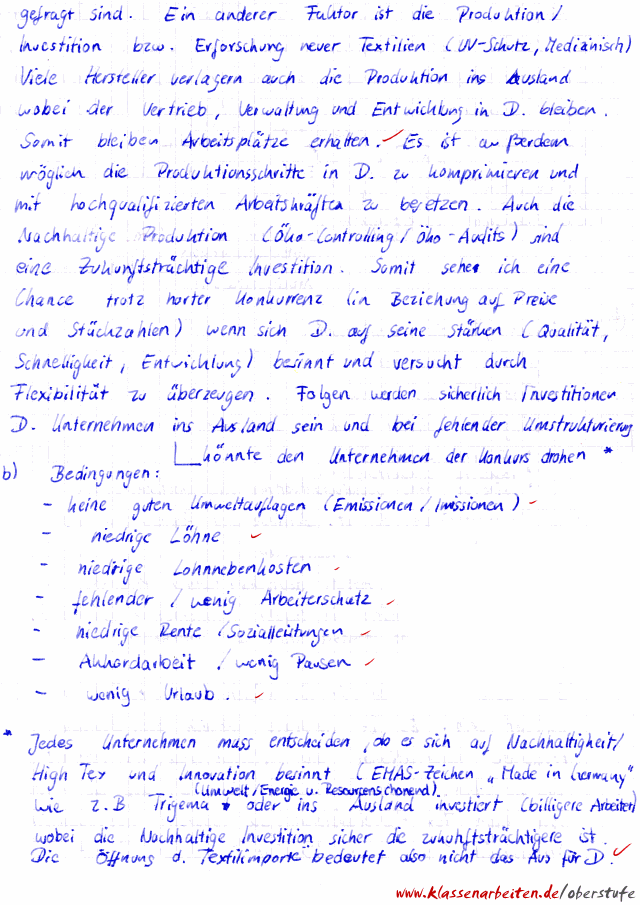 gefragt sind. Ein anderer Faktor ist die Produktion/
Investition bzw. Erforschung neuer Textilien (UV-Schutz, Medizinisch)
Viele Hersteller verlagern auch die Produktion ins Ausland
wobei der Vertrieb, Verwaltung und Entwicklung in D. bleiben.
Somit bleiben Arbeitsplätze erhalten. Es ist außerdem
möglich die Produktionsschritte in D. zu komprimieren und
mit hochqualifizierten Arbeitskräften zu besetzen. Auch die
Nachhaltige Produktion (Öko-Controlling / Öko-Audits) sind
eine Zukunftsträchtige Investition. Somit sehe ich eine
Chance trotz harter Konkurrenz (in Beziehung auf Preise
und Stückzahlen) wenn sich D. auf seine Stärken (Qualität,
Schnelligkeit, Entwicklung) besinnt und versucht durch
Flexibilität zu überzeugen. Folgen werden sicherlich Investitionen
D. Unternehmen ins Ausland sein und bei fehlender Umstrukturierung
könnte den Unternehmen der Konkurs drohen *
b) Bedingungen:
- keine guten Umweltauflagen (Emissionen / Imissionen)
- niedrige Löhne
- niedrige Lohnnebenkosten
- fehlender / wenig Arbeiterschutz
- niedrige Rente / Sozialleistungen
- Akkordarbeit / wenig Pausen
- wenig Urlaub.
* Jedes Unternehmen muss entscheiden, ob es sich auf Nachhaltigkeit/
High Tex und Innovation besinnt (EMAS-Zeichen „Made in Germany"
(Umwelt/Energie u. Resourcenschonend)
wie z.B Trigema oder ins Ausland investiert (billigere Arbeiter)
wobei die Nachhaltige Investition sicher die zukunftsträchtigere ist.
Die Öffnung d. Textilimporte bedeutet also nicht das Aus für D.
www.klassenarbeiten.de/oberstufe